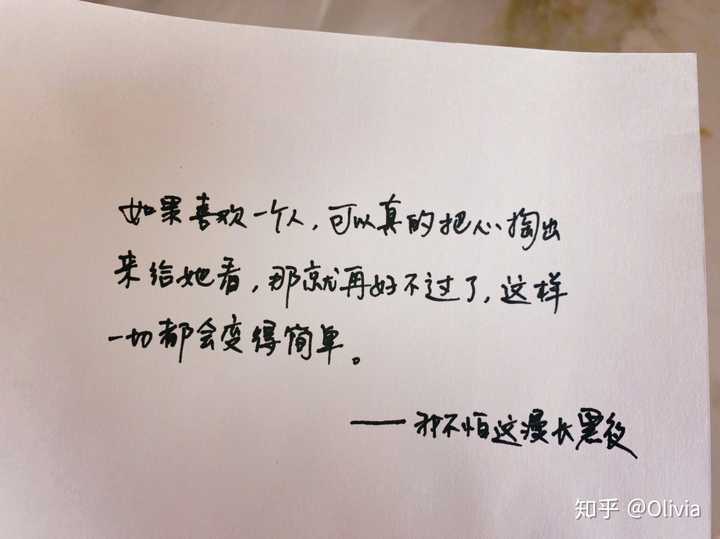 如果喜欢一个人,可以真的把心掏出
来给她看,那就再好不过了,这样
一切都会变得简单。
——我不怕这漫长黑夜
知乎 @Olivia